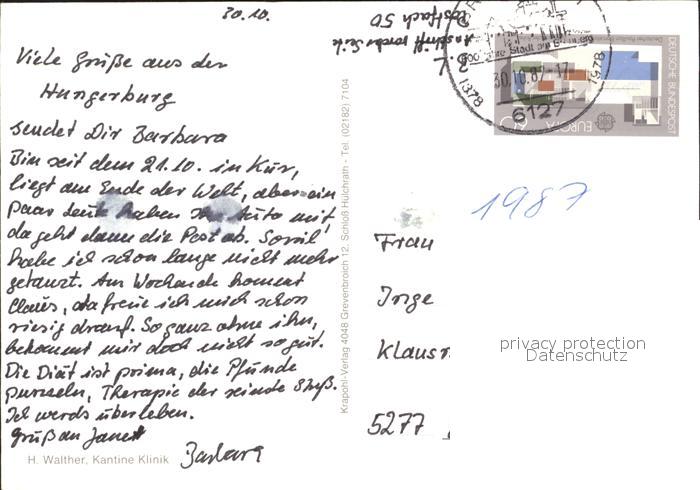 30.10.
Viele Grüße aus der
Hungerburg
sendet Dir Barbara
Bin seit dem 21.10. in Kur,
liegt am Ende der Welt, aber ein
paar Leute haben Auto mit,
da geht dann die Post ab. Soviel
habe ich schon lange nicht mehr
getanzt. Am Wochende kommt
Claus, da freue ich mich schon
riesig drauf. So ganz ohne ihn,
bekommt mir doch nicht so gut.
Die Diät ist prima, die Pfunde
purzeln, Therapie der reinde Streß.
Ich werds überleben.
Gruß an Janett
Barbara
H. Walther, Kantine Klinik
Krapohl-Verlag 4048 Grevenbroich 12, Schloß Hülchrath - Tel. (02182) 7104
Postfach 50
Stadt
1378 1978
30.10.87-17
6127
DEUTSCHE BUNDESPOST
EUROPA
60
1987
Frau
Inge
Klausr
5277
privacy protection
Datenschutz